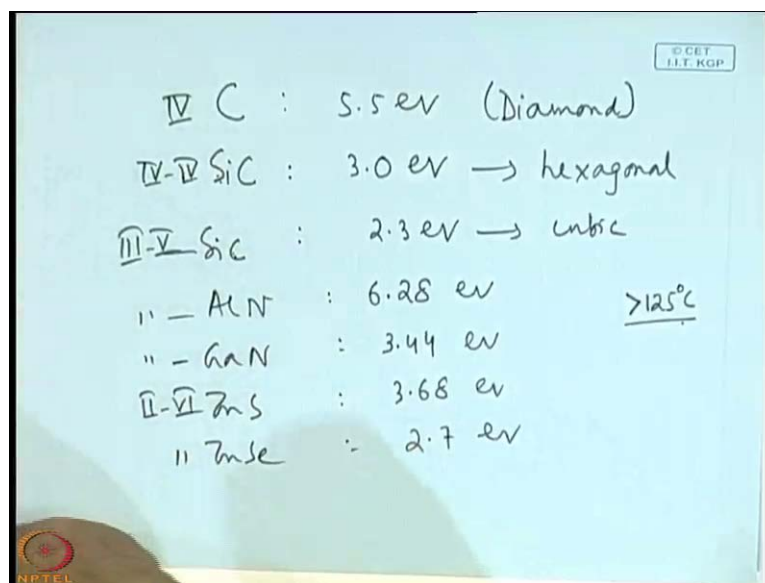 © CET
I.I.T. KGP
IV C : 5.5 ev (Diamond)
IV-IV SiC : 3.0 ev → hexagonal
III-V SiC : 2.3 ev → cubic
" - AlN : 6.28 ev
>125°C
" - GaN : 3.44 ev
II-VI ZnS : 3.68 ev
" ZnSe :- 2.7 ev
NPTEL